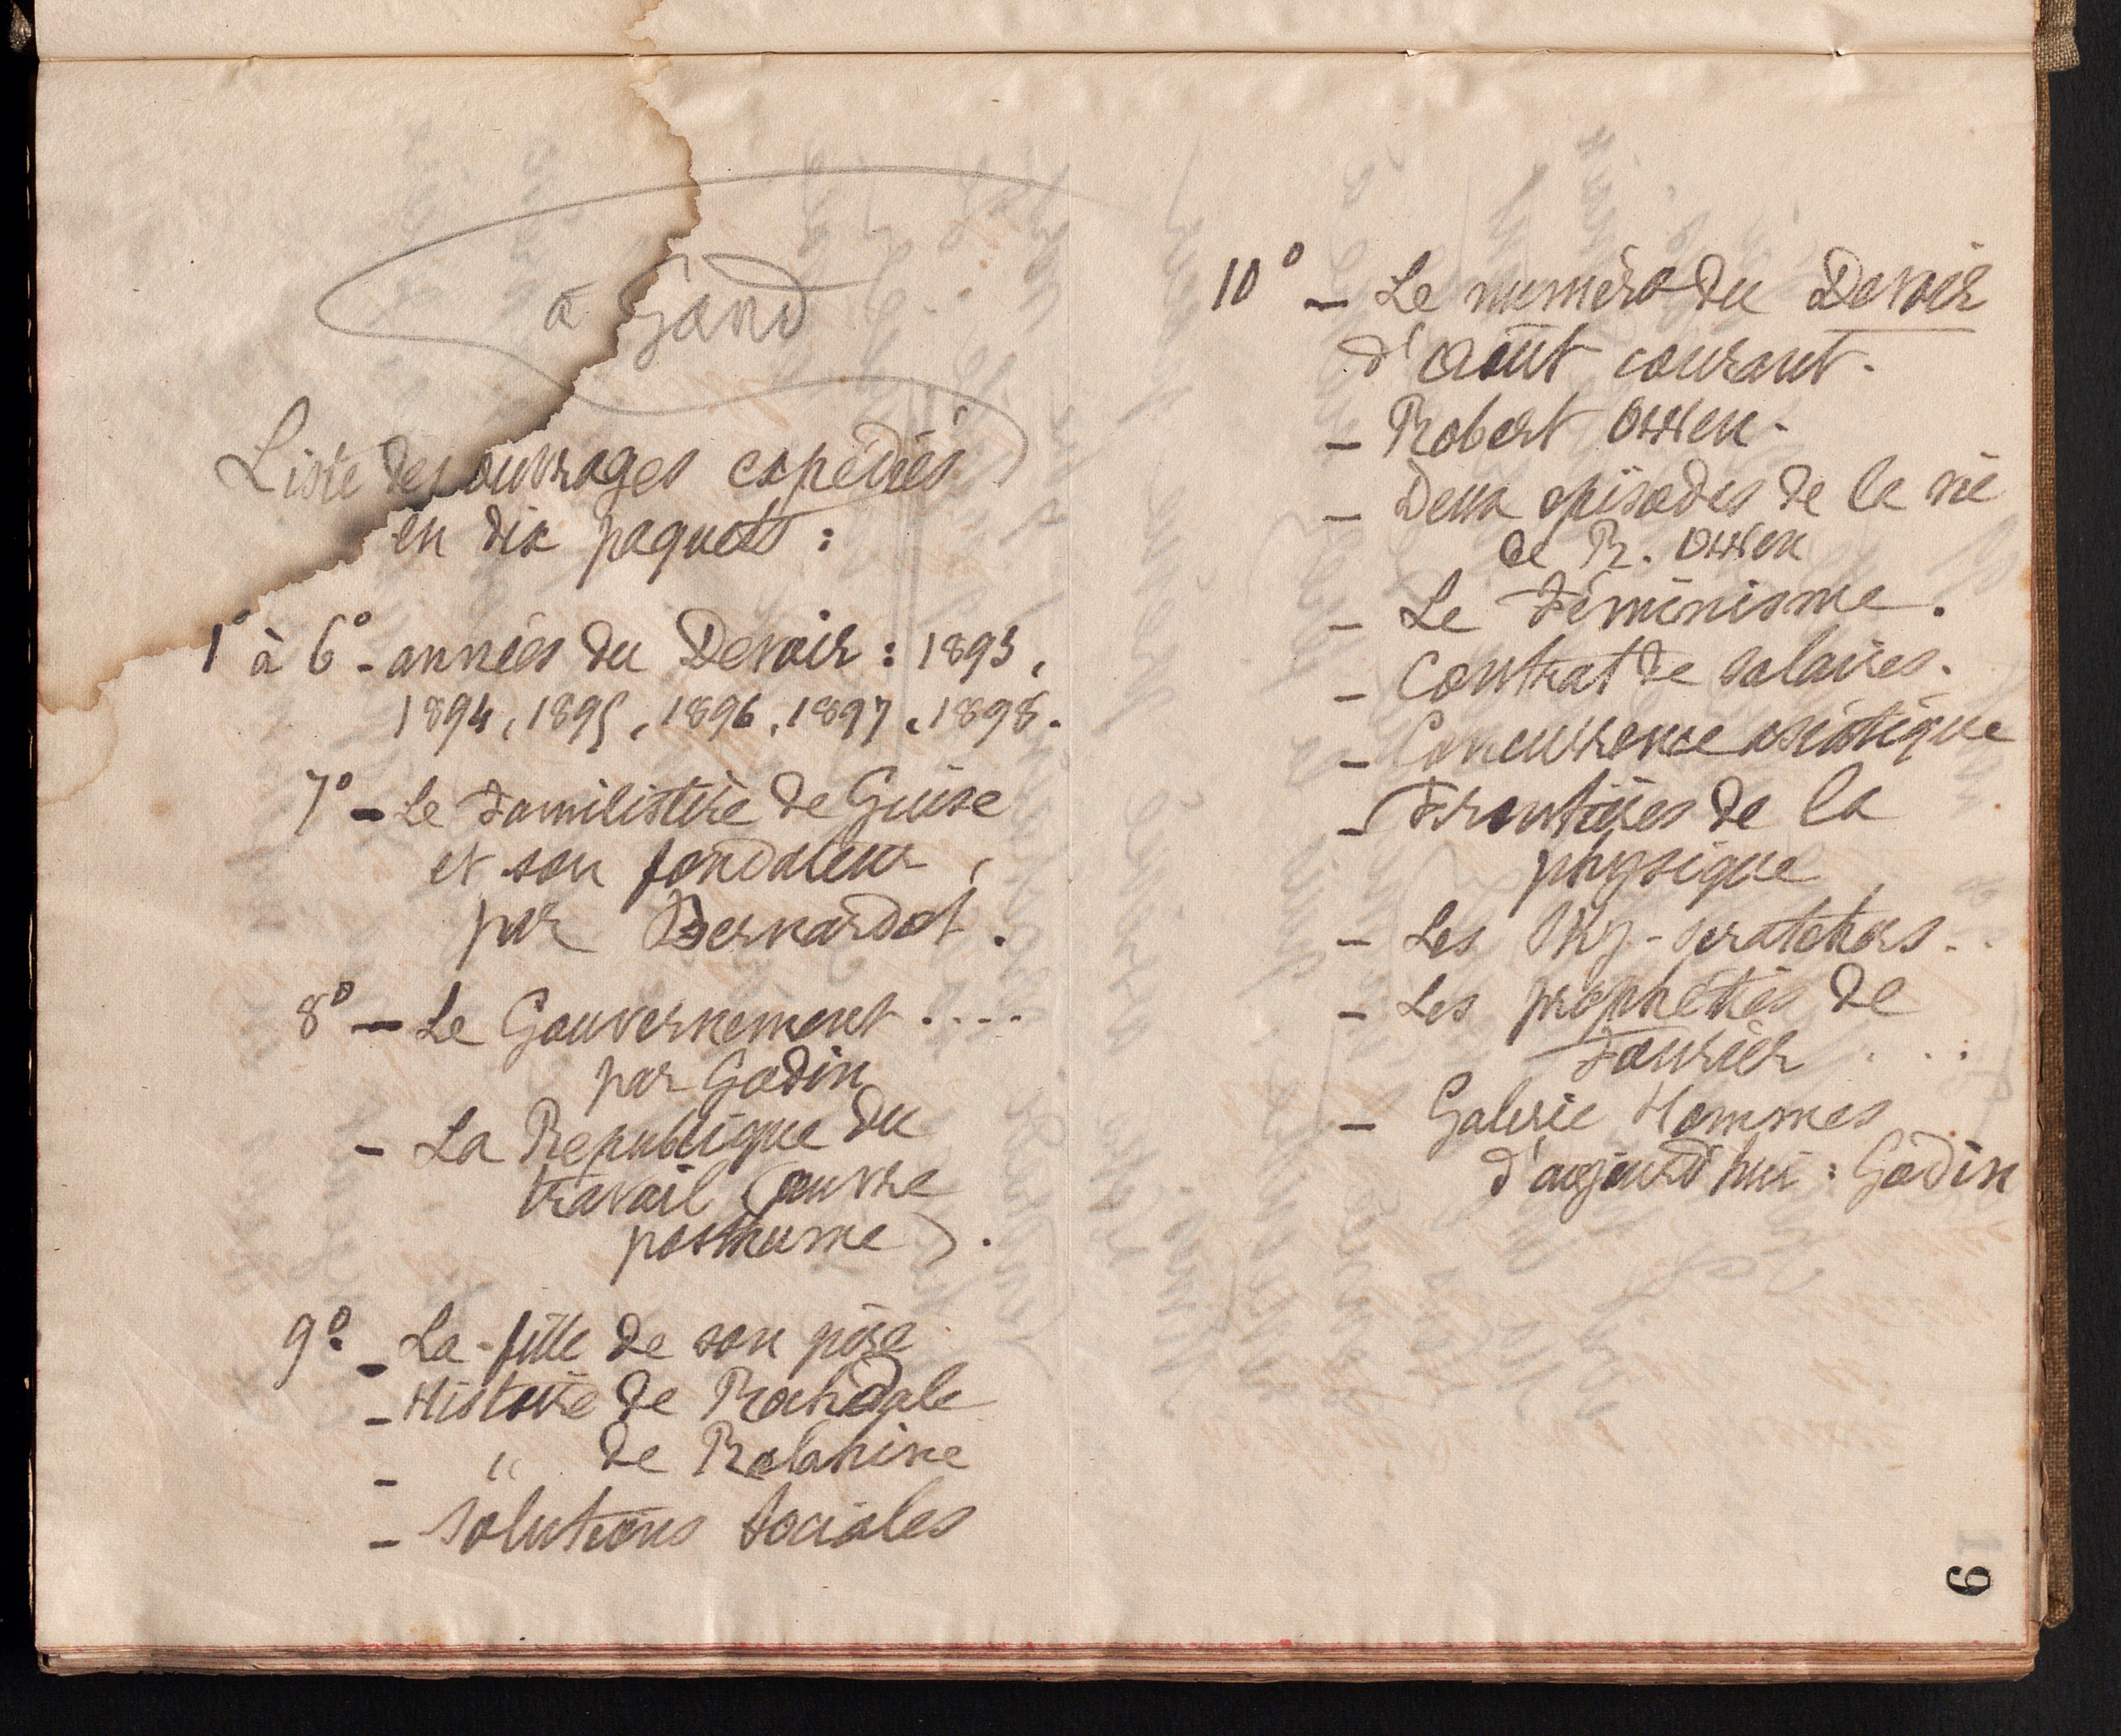 à Gand
Liste des ouvrages expédiés
en dix paquets :
1° à 6° - années du Devoir : 1893,
1894, 1895, 1896, 1897, 1898.
7° - Le Familistère de Guise
et son fondateur,
par Bernardot.
8° - Le Gouvernement ....
par Godin
- La République du
travail (œuvre
posthume).
9° - La fille de son père
- Histoire de Rochdale
- " de Ralahine
- Solutions sociales
10° - Le numéro du Devoir
d'Août courant.
- Robert Owen.
- Deux épisodes de la vie
de R. Owen
- Le Féminisme.
- Contrat de salaires.
- Concurrence asiatique
- Frontières de la
physique
- Les Sky-scratchers..
- Les prophéties de
Fourier ...
- Galerie Hommes
d'aujourd'hui : Godin
6